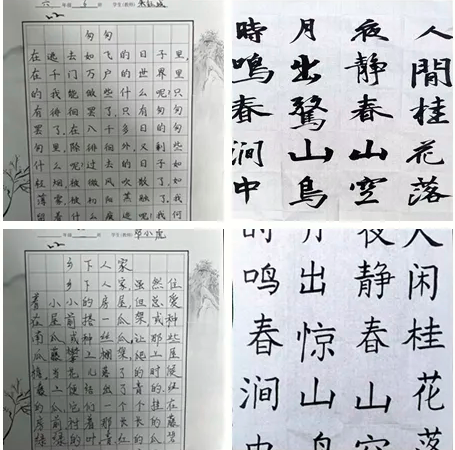 六 6 学生(教师)
匆匆
在逃去如飞的日子里,
在千门万户的世界里
的我能做些什么呢?只
有徘徊罢了,只有匆匆
罢了,在八千多日的匆
匆里,除徘徊外,又剩些
什么呢?过去的日子如
轻烟被微风吹散了,如
薄雾,被初阳蒸融了,我
留着什么痕迹呢?我何
人間桂花落
夜静春山空
月出驚山鳥
時鳴春澗中
学生(教师) 邹小虎
乡下人家
乡下人家,虽然住
着小小的房屋,但总爱
在屋前搭一瓜架,或种
南瓜,或种丝瓜,让那些
瓜藤攀上棚架,爬上屋
檐。当花儿落了的时候,
藤上便结出了青的、红
的瓜,它们一个个挂在
房前,衬着那长长的藤,
绿绿的叶。青、红的瓜,碧
人闲桂花落
夜静春山空
月出惊山鸟
时鸣春涧中